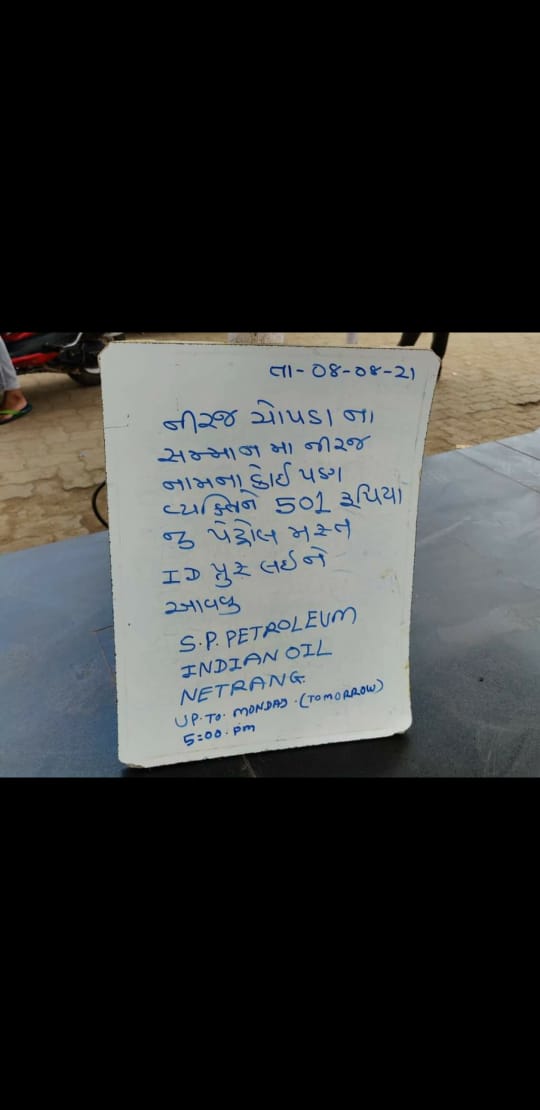 તા-08-08-21
નીરજ ચોપડા ના
સન્માન મા નીરજ
નામના કોઈ પણ
વ્યક્તિને 501 રૂપિયા
નુ પેટ્રોલ મફત
ID પ્રુફ લઈ ને
આવવુ
S.P. PETROLEUM
INDIAN OIL
NETRANG
UP.TO. MONDAY. (TOMORROW)
5:00.pm